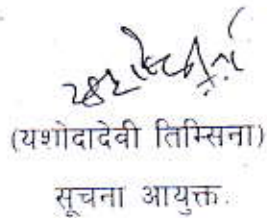 (यशोदादेवी तिम्सिना)
सूचना आयुक्त.